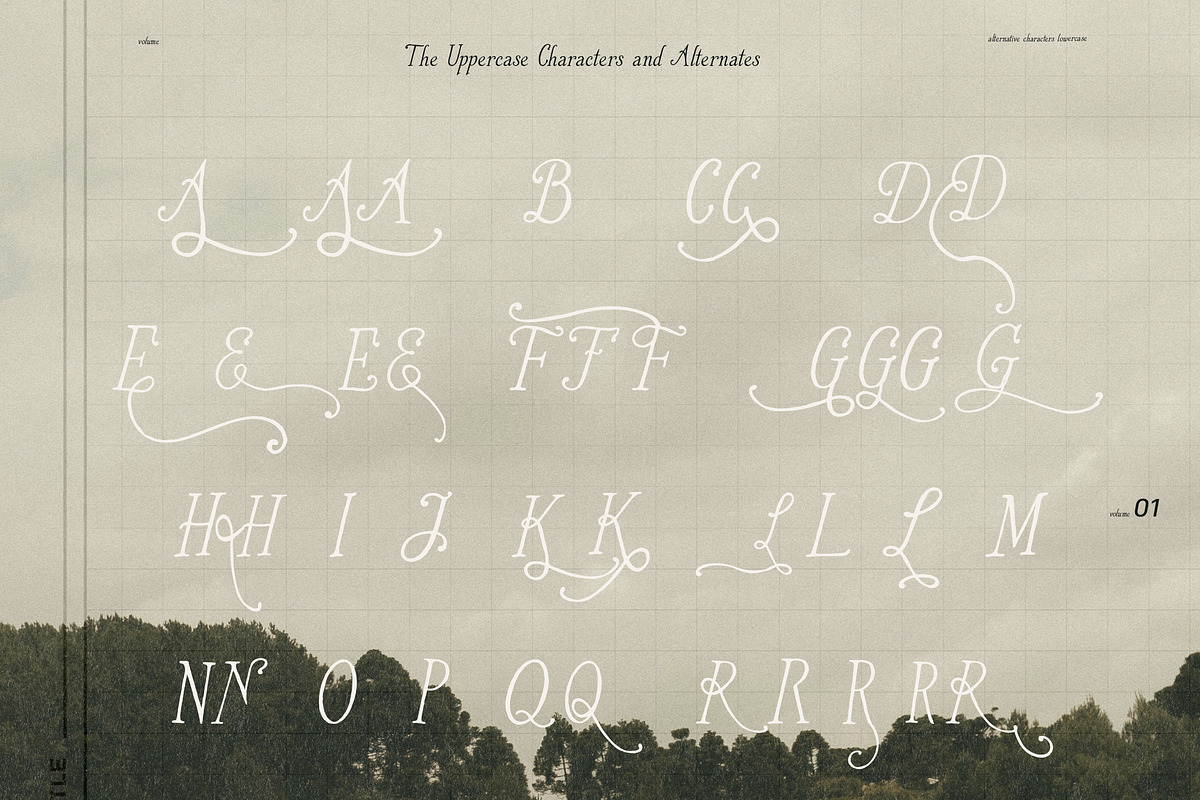 volume
The Uppercase Characters and Alternates
alternative characters lowercase
A A A B C C D D
E E E E F F F G G G G
H H I J K K L L L M
volume 01
N N O P Q Q R R R R R
TLE